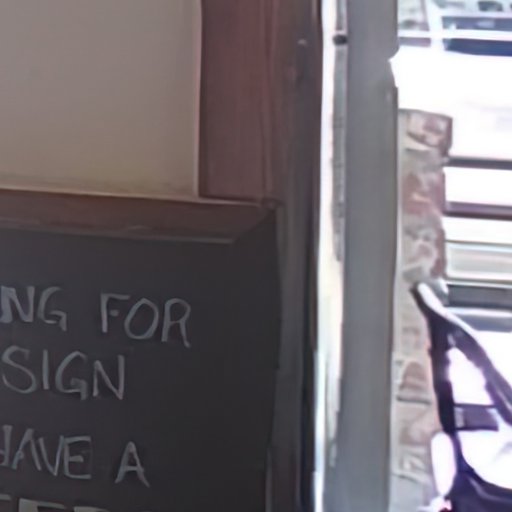 NG FOR
SIGN
HAVE A